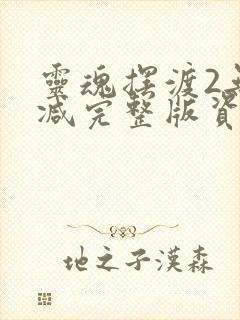 靈魂擺渡2無
減完整版資
地之子漢森